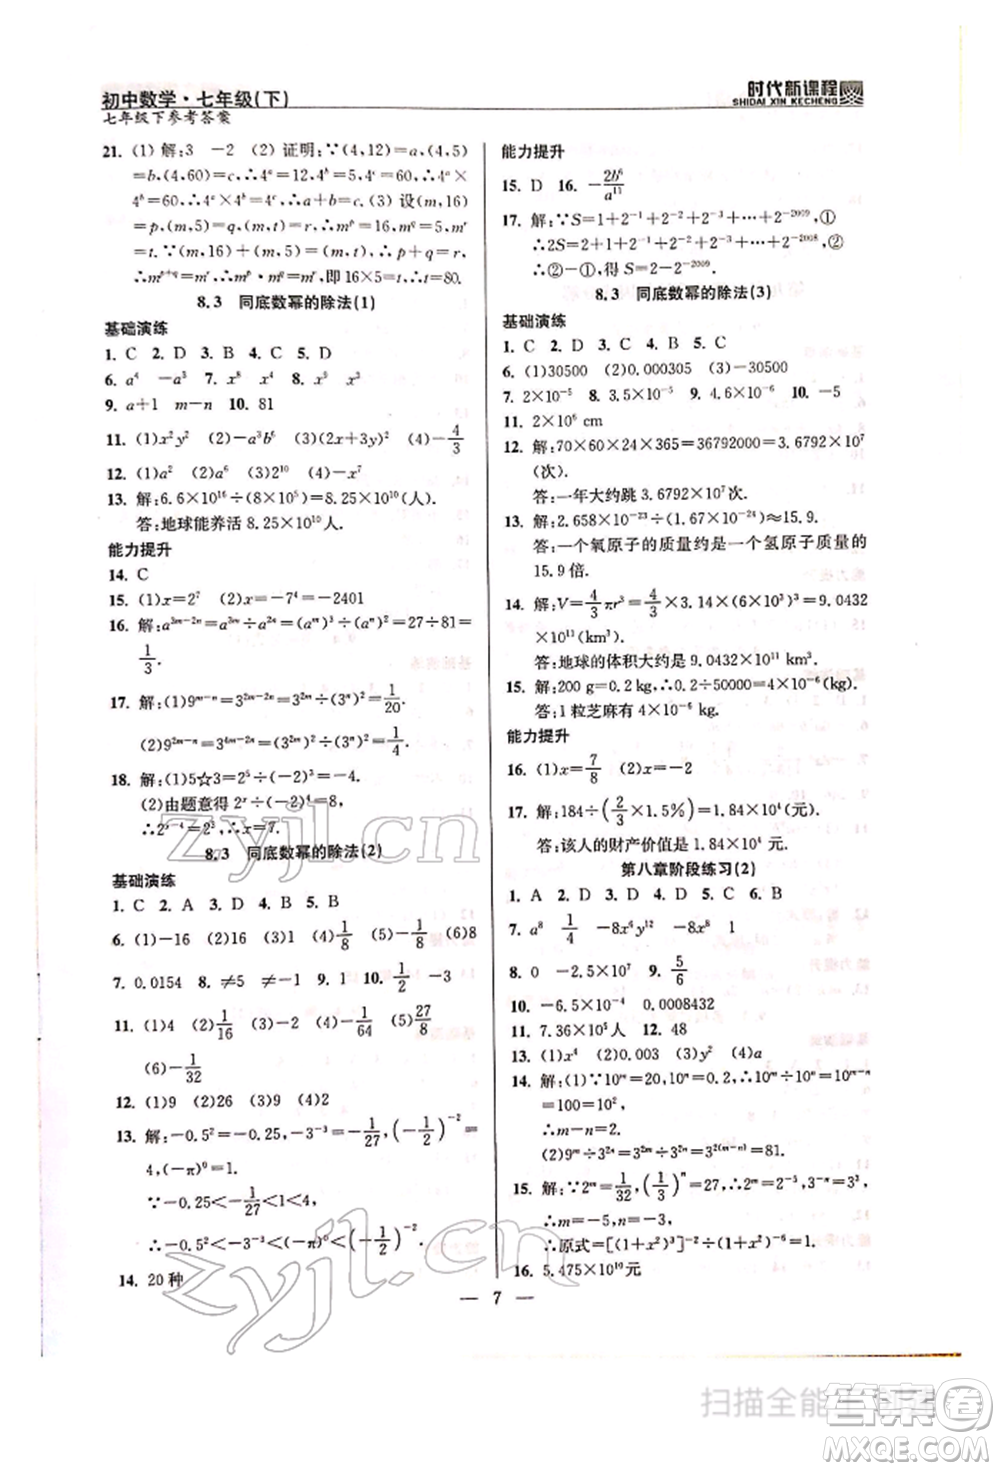 初中数学·七年级(下)
七年级下参考答案
时代新课程
SHIDAI XIN KECHENG
21. (1) 解:3 -2 (2) 证明:∵(4,12)=a,(4,5)
=b,(4,60)=c,∴4^a=12,4^b=5,4^c=60,∴4^a×
4^b=60,∴4^a×4^b=4^c,∴a+b=c. (3) 设(m,16)
=p,(m,5)=q,(m,t)=r,∴m^p=16,m^q=5,m^r
=t.∵(m,16)+(m,5)=(m,t),∴p+q=r,
∴m^{p+q}=m^r,∴m^p·m^q=m^r,即16×5=t,∴t=80.
8.3 同底数幂的除法(1)
基础演练
1. C 2. D 3. B 4. C 5. D
6. a^4 -a^5 7. x^8 x^4 8. x^4 x^3
9. a+1 m-n 10. 81
11. (1)x^2y^2 (2)-a^3b^6 (3)(2x+3y)^2 (4)-4/3
12. (1)a^2 (2)a^6 (3)2^10 (4)-x^7
13. 解:6.6×10^16÷(8×10^5)=8.25×10^10(人).
答:地球能养活 8.25×10^10人.
能力提升
14. C
15. (1)x=2^7 (2)x=-7^4=-2401
16. 解:a^{3m-2n}=a^{3m}÷a^{2n}=(a^m)^3÷(a^n)^2=27÷81=
1/3.
17. 解:(1)9^{m-n}=3^{2m-2n}=3^{2m}÷3^{2n}=(3^m)^2÷(3^n)^2=1/20.
(2)9^{2m-n}=3^{4m-2n}=3^{4m}÷3^{2n}=(3^m)^4÷(3^n)^2=1/4.
18. 解:(1)5☆3=2^5÷(-2)^3=-4.
(2)由题意得2^x÷(-2)^4=8,
∴2^{x-4}=2^3,∴x=7.
8.3 同底数幂的除法(2)
基础演练
1. C 2. A 3. D 4. B 5. D
6. (1)-16 (2)16 (3)-1/8 (4)1/8 (5)-8 (6)8
7. 0.0154 8. ≠5 ≠-1 9. 1 10. 1/4 -3
11. (1)4 (2)1/16 (3)-2 (4)-1/64 (5)27/8
(6)-1/32
12. (1)9 (2)6 (3)9 (4)2
13. 解:-0.5^2=-0.25,-3^{-3}=-1/27,(-1/2)^{-2}=
4,(-π)^0=1.
∵-0.25<-1/27<1<4,
∴-0.5^2<-3^{-3}<(-π)^0<(-1/2)^{-2}
14. 20 种
能力提升
15. D 16. -2b^6/a^11
17. 解:∵S=1+2^{-1}+2^{-2}+2^{-3}+…+2^{-2009},①
∴2S=2+1+2^{-1}+2^{-2}+…+2^{-2008},②
∴②-①,得 S=2-2^{-2009}
8.3 同底数幂的除法(3)
基础演练
1. C 2. D 3. A 4. B 5. C
6. (1)30500 (2)0.000305 (3)-30500
7. 2×10^{-5} 8. 3.5×10^{-5} 9. 4.6×10^{-6} 10. -5
11. 2×10^6 cm
12. 解:70×60×24×365=36792000=3.6792×10^7
(次).
答:一年大约跳 3.6792×10^7次.
13. 解:2.658×10^{-23}÷(1.67×10^{-24})≈15.9.
答:一个氧原子的质量约是一个氢原子质量的
15.9 倍.
14. 解:V=4/3πr^3=4/3×3.14×(6×10^3)^3=9.0432
×10^11(km^3).
答:地球的体积大约是 9.0432×10^11 km^3.
15. 解:200 g=0.2 kg,∴0.2÷50000=4×10^{-6}(kg).
答:1 粒芝麻有 4×10^{-6} kg.
能力提升
16. (1)x=7/8 (2)x=-2
17. 解:184÷(2/3×1.5%)=1.84×10^4(元).
答:该人的财产价值是 1.84×10^4 元.
第八章阶段练习(2)
1. A 2. D 3. D 4. C 5. D 6. B
7. a^8 1/4 -8x^6y^12 -8x^8 1
8. 0 -2.5×10^7 9. 5/6
10. -6.5×10^{-4} 0.0008432
11. 7.36×10^5人 12. 48
13. (1)x^4 (2)0.003 (3)y^2 (4)a
14. 解:(1)∵10^m=20,10^n=0.2,∴10^m÷10^n=10^{m-n}
=100=10^2,
∴m-n=2.
(2)9^m÷3^{2n}=3^{2m}÷3^{2n}=3^{2(m-n)}=3^4=81.
15. 解:∵2^m=1/32,(1/3)^n=27,∴2^m=2^{-5},3^{-n}=3^3,
∴m=-5,n=-3.
∴原式=[(1+x^2)^{-5}]^0÷(1+x^2)^0=1.
16. 5.475×10^10元
— 7 —
zyjl.cn
zyjl.cn
答案圈
MXQE.COM